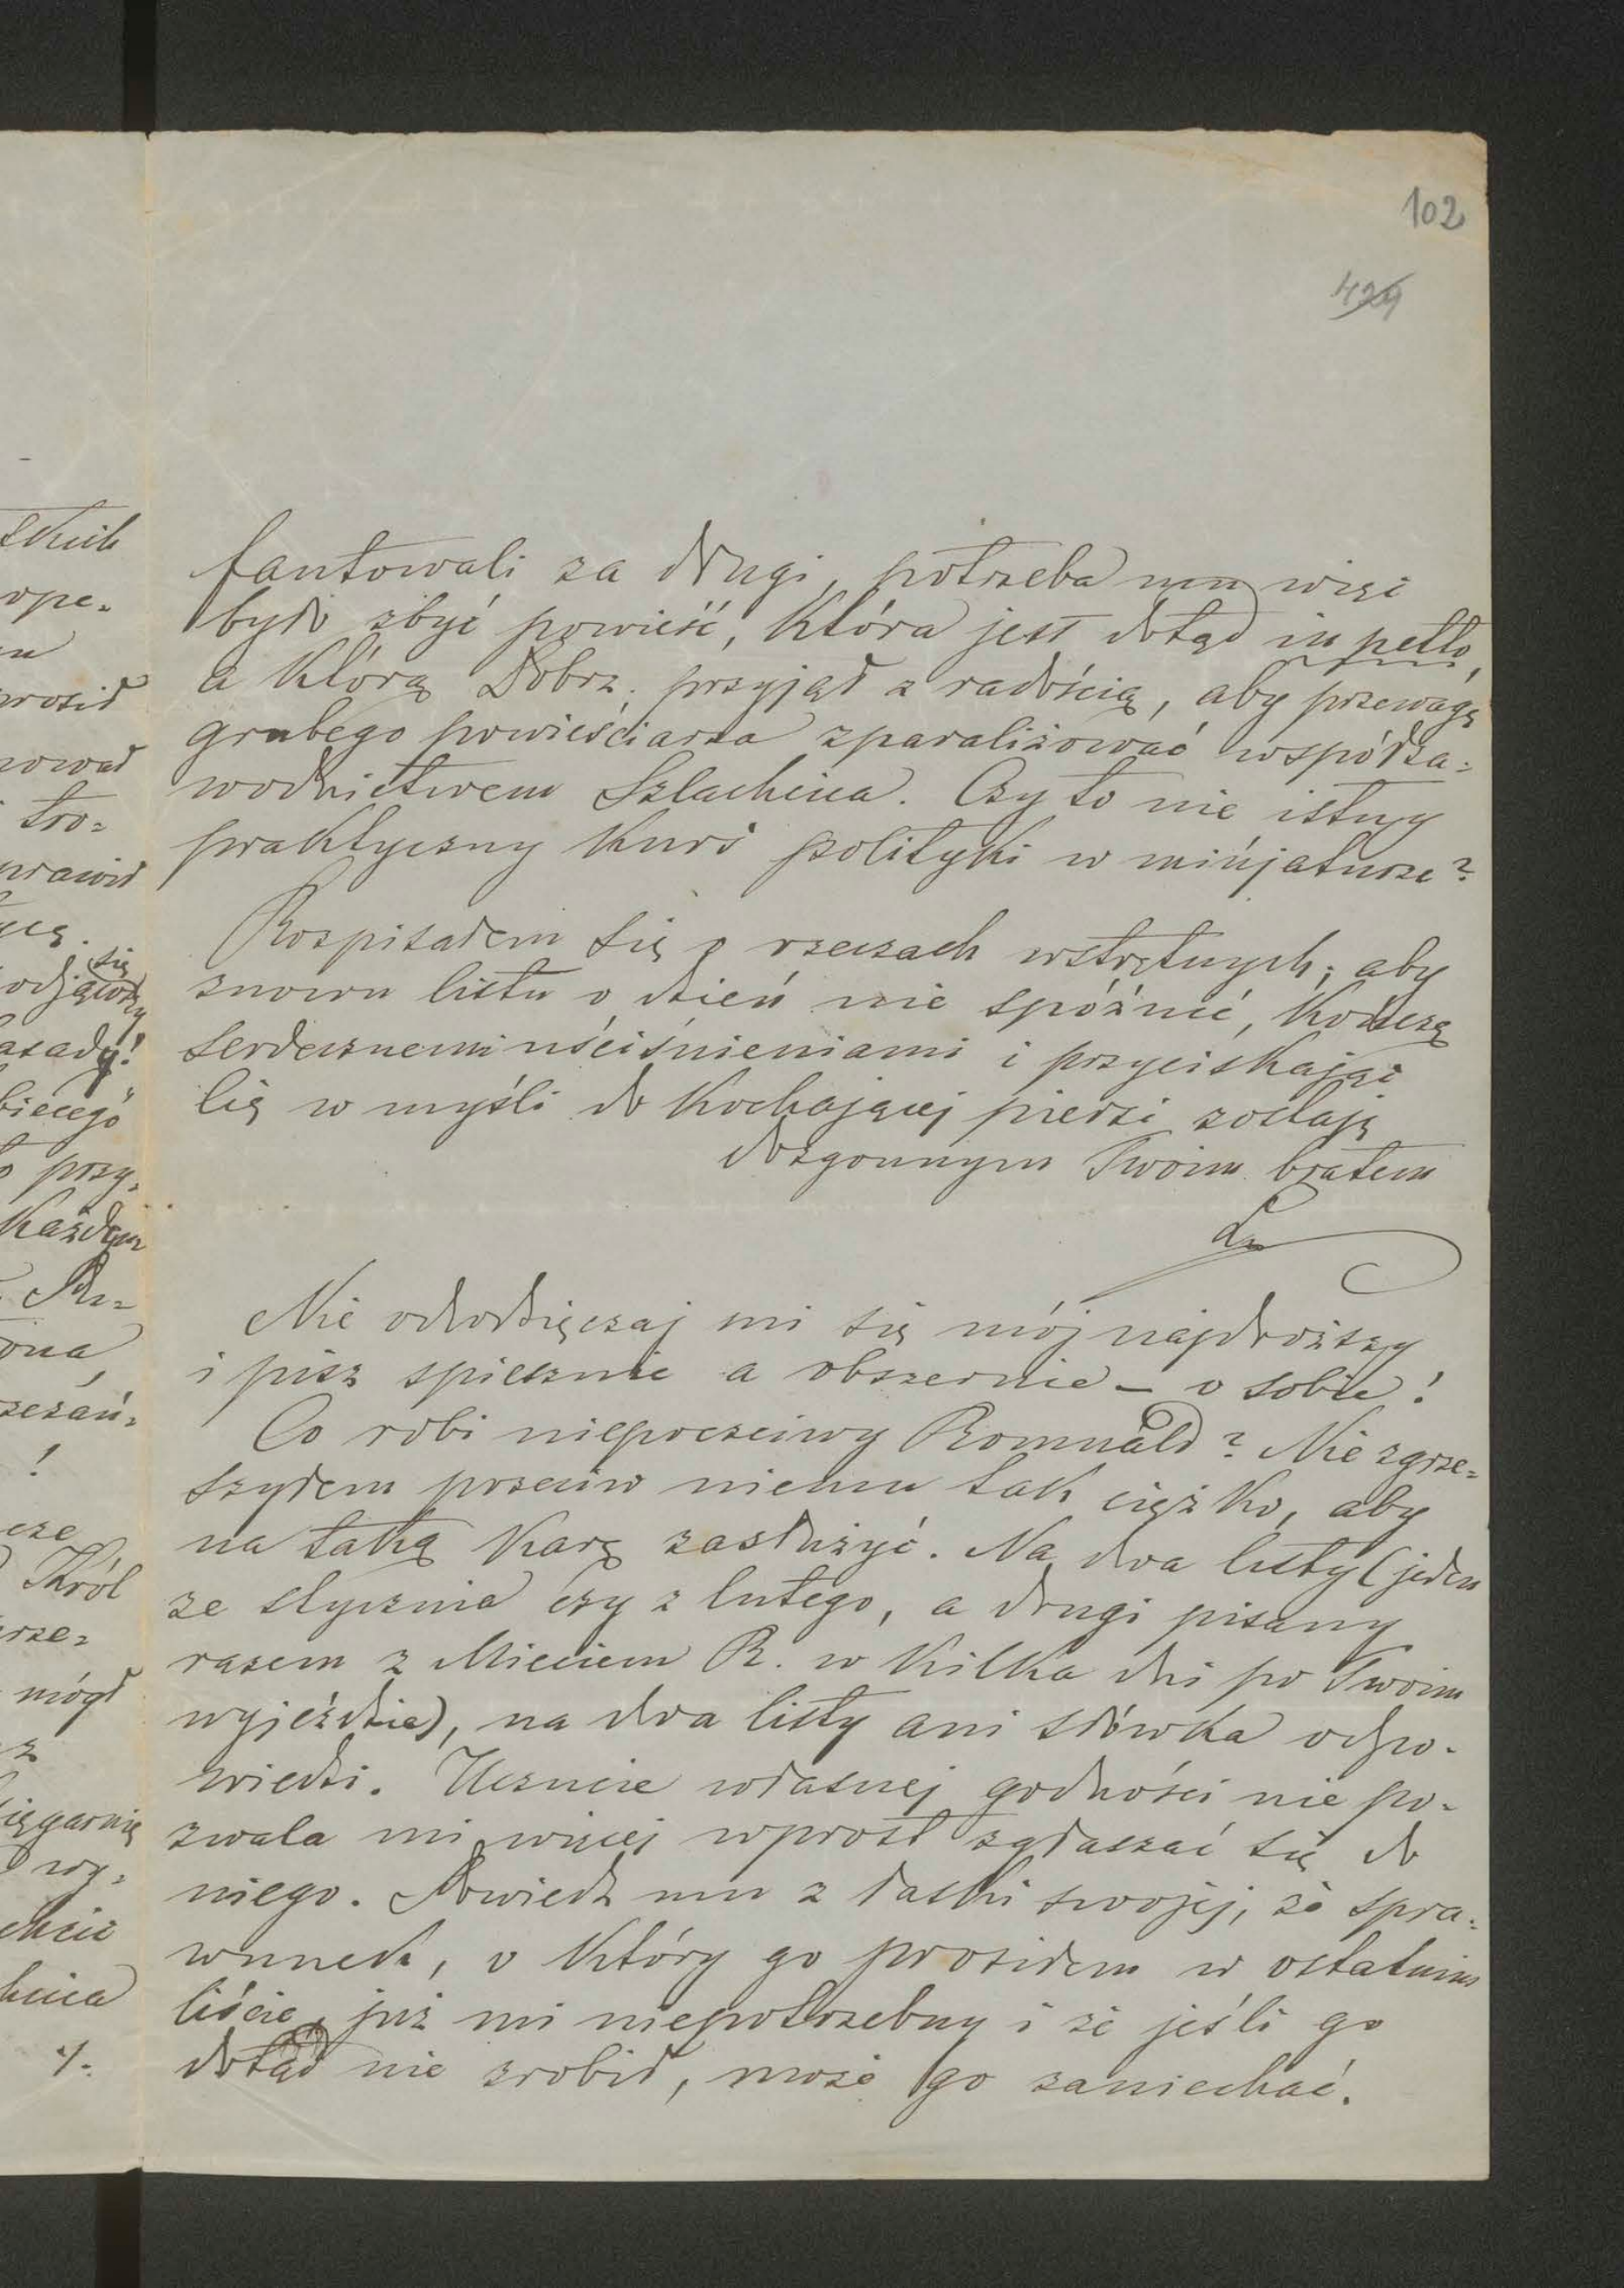 102
429
fantowali za długi, potrzeba mu więc
było zbyć powieść, która jest dotąd in petto,
a którą Dobrz. przyjął z radością, aby przewagę
grubego powieściarza zparaliżować współza-
wodnictwem Szlachcica. Czy to nie istny
praktyczny kurs polityki w minjaturze?
Rozpisałem się o rzeczach wstrętnych; aby
znowu listu o dzień nie spóźnić, kończę
serdecznemi uściśnieniami i przyciskając
Cię w myśli do kochającej piersi zostaję
dozgonnym Twoim bratem
Nie odwdzięczaj mi się mój najdroższy
i pisz spiesznie a obszernie – o sobie!
Co robi niepoczciwy Romuald? Nie zgrze-
szyłem przeciw niemu tak ciężko, aby
na taką karę zasłużyć. Na dwa listy (jeden
ze stycznia czy z lutego, a drugi pisany
razem z Mieciem R. w kilka dni po Twoim
wyjeździe), na dwa listy ani słówka odpo-
wiedzi. Uczucie własnej godności nie po-
zwala mi więcej wprost zgłaszać się do
niego. Powiedz mu z łaski swojej, że spra-
wunek, o który go prosiłem w ostatnim
liście, już mi niepotrzebny i że jeśli go
dotąd nie zrobił, może go zaniechać.